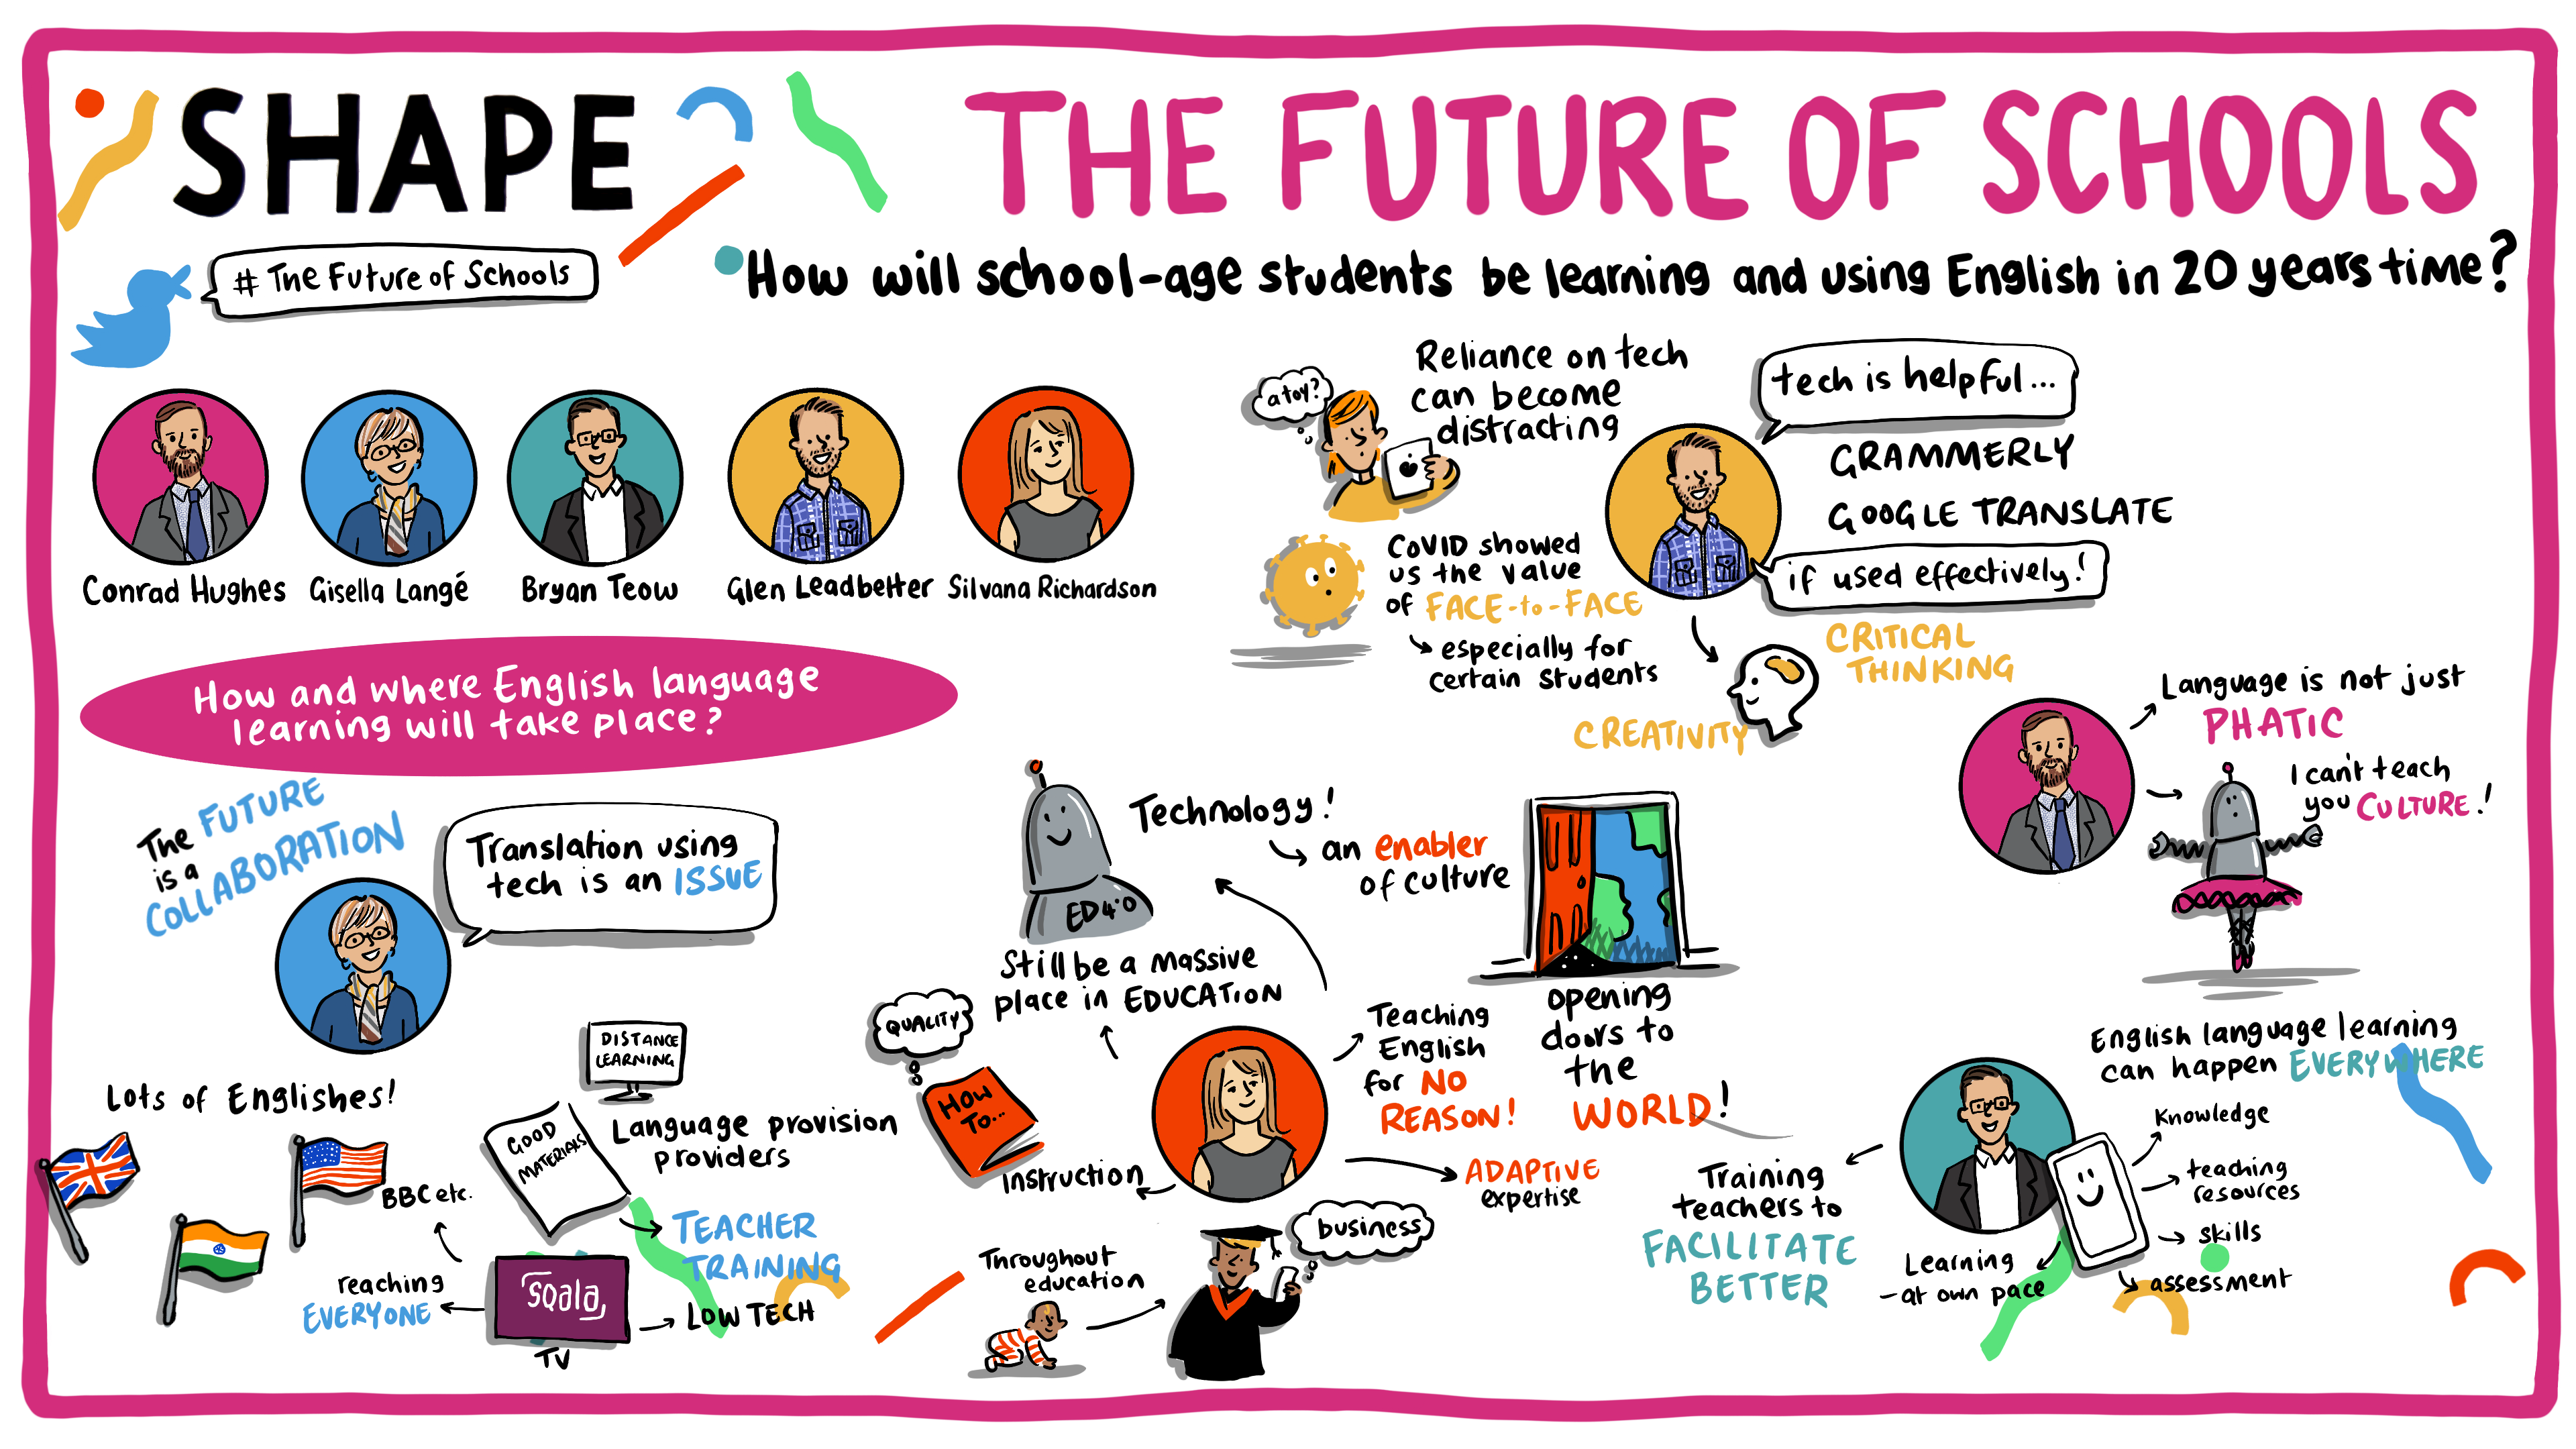 SHAPE
THE FUTURE OF SCHOOLS
# The Future of Schools
How will school-age students be learning and using English in 20 years time?
Conrad Hughes
Gisella Langé
Bryan Teow
Glen Leadbetter
Silvana Richardson
a toy?
Reliance on tech
can become
distracting
tech is helpful...
GRAMMERLY
GOOGLE TRANSLATE
if used effectively!
COVID showed
us the value
of FACE-to-FACE
especially for
certain students
CRITICAL
THINKING
CREATIVITY
How and where English language
learning will take place?
Language is not just
PHATIC
I can't teach
you CULTURE!
The FUTURE
is a
COLLABORATION
Translation using
tech is an ISSUE
Lots of Englishes!
DISTANCE
LEARNING
GOOD
MATERIALS
Language provision
providers
TEACHER
TRAINING
BBC etc.
reaching
EVERYONE
sqala
TV
LOW TECH
Technology!
an enabler
of culture
ED4.0
Still be a massive
place in EDUCATION
QUALITY
HOW
TO...
Instruction
Teaching
English
for NO
REASON!
opening
doors to
the
WORLD!
ADAPTIVE
expertise
Throughout
education
business
English language learning
can happen EVERYWHERE
Knowledge
teaching
resources
skills
assessment
Learning
- at own pace
Training
teachers to
FACILITATE
BETTER